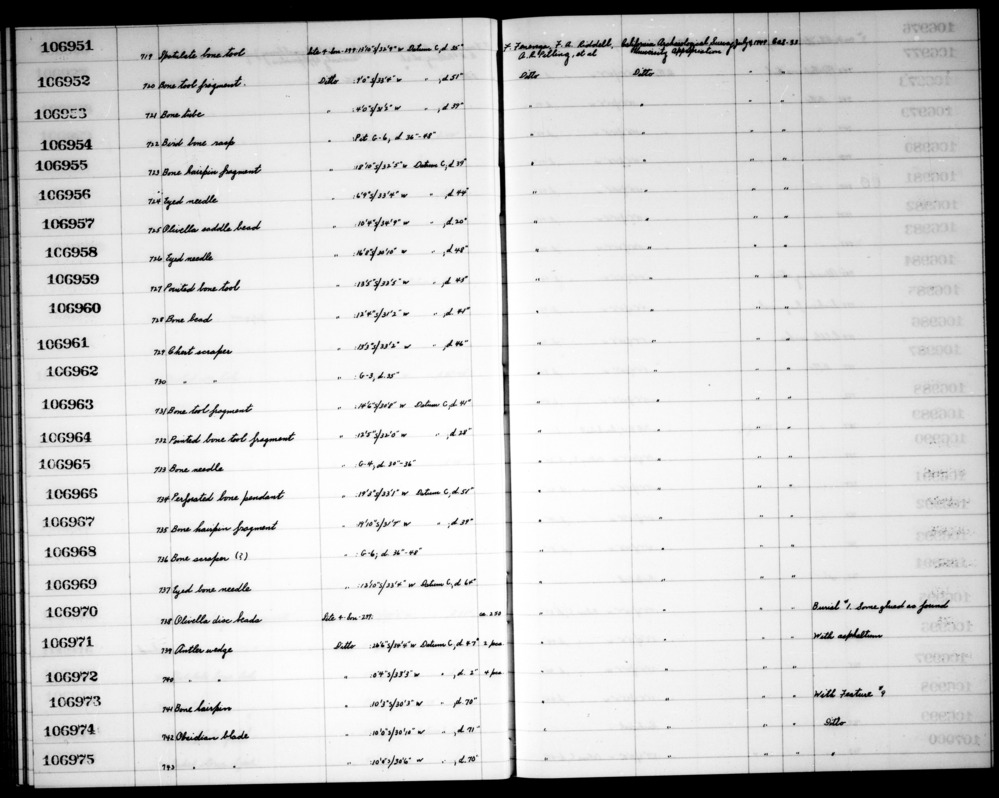 106951 719 Spatulate bone tool Site 4-Son-299: 15'10"S/32'4" W Datum C, d. 35" F. Fenenga, F. A. Riddell, California Archaeological Survey, July 9, 1949 Acc. 
A. R. Pilling, et al University Appropriation
106952 720 Bone tool fragment. Ditto : 9'0"S/35'4" W " , d. 51" Ditto Ditto " "
106953 721 Bone tube " : 4'0"S/31'5" W " , d. 39" " " " "
106954 722 Bird bone rasp " : Pit G-6, d. 36"-48" " " " "
106955 723 Bone hairpin fragment " : 18'10"S/32'5" W Datum C, d. 39" " " " "
106956 724 Eyed needle " : 6'9"S/33'4" W " , d. 44" " " " "
106957 725 Olivella saddle bead " : 10'4"S/34'9" W " , d. 20" " " " "
106958 726 Eyed needle " : 16'8"S/30'10" W " , d. 48" " " " "
106959 727 Pointed bone tool " : 13'5"S/33'5" W " , d. 45" " " " "
106960 728 Bone bead " : 12'4"S/31'2" W " , d. 41" " " " "
106961 729 Chert scraper " : 13'3"S/33'2" W " , d. 46" " " " "
106962 730 " " " : G-3, d. 35" " " " "
106963 731 Bone tool fragment " : 14'6"S/30'8" W Datum C, d. 41" " " " "
106964 732 Pointed bone tool fragment " : 13'5"S/32'0" W " , d. 28" " " " "
106965 733 Bone needle " : G-4, d. 30"-36" " " " "
106966 734 Perforated bone pendant " : 19'5"S/33'1" W Datum C, d. 51" " " " "
106967 735 Bone hairpin fragment " : 9'10"S/31'7" W " , d. 39" " " " "
106968 736 Bone scraper (?) " : G-6, d. 36"-48" " " " "
106969 737 Eyed bone needle " : 13'10"S/33'4" W Datum C, d. 64" " " " "
106970 738 Olivella disc beads Site 4-Son-299. ca. 240 " " " " Burial #1. Some glued as found
106971 739 Antler wedge Ditto : 26'6"S/34'4" W Datum C, d. 47" 2 pcs " " " " With asphaltum
106972 740 " : 0'4"S/33'3" W " , d. 2" 4 pcs " " " "
106973 741 Bone hairpin " : 10'3"S/30'3" W " , d. 70" " " " " With Feature #9
106974 742 Obsidian blade " : 10'0"S/30'10" W " , d. 71" " " " " Ditto
106975 743 " " " : 10'4"S/30'6" W " , d. 70" " " " " "